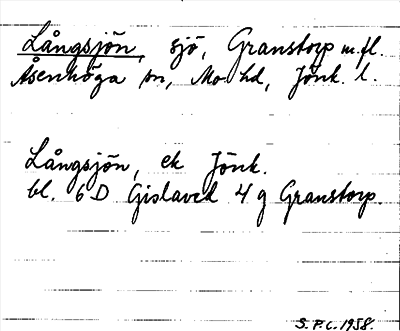 Långsjön, sjö, Granstorp m.fl.
Åsenhöga sn, Mo hd, Jönk. l.
Långsjön, ek Jönk.
bl. 6 D Gislaved 4 g Granstorp.
S.P.C. 1958.